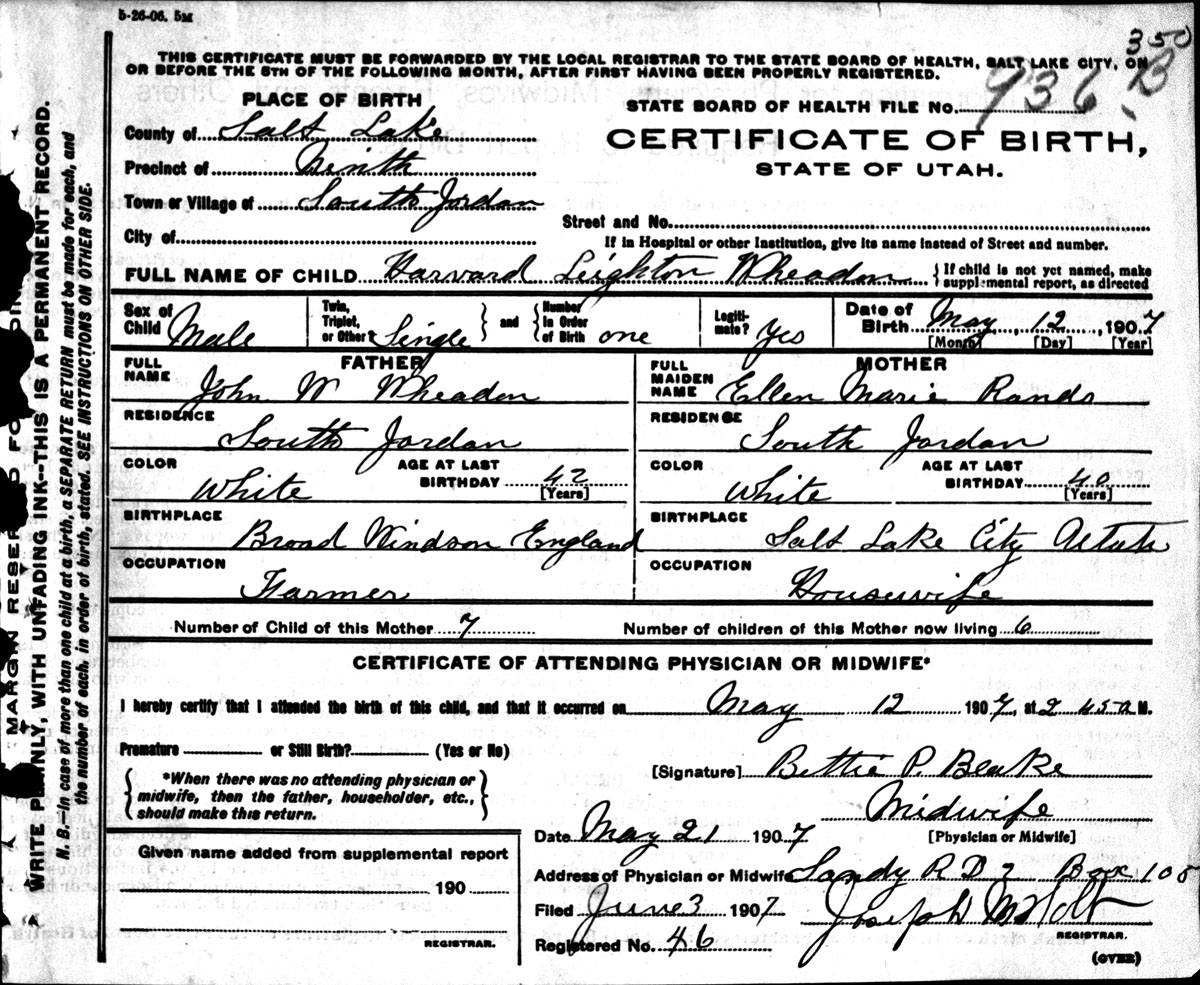 5-26-06. 5M
350
THIS CERTIFICATE MUST BE FORWARDED BY THE LOCAL REGISTRAR TO THE STATE BOARD OF HEALTH, SALT LAKE CITY, ON
OR BEFORE THE 5TH OF THE FOLLOWING MONTH, AFTER FIRST HAVING BEEN PROPERLY REGISTERED.
PLACE OF BIRTH
STATE BOARD OF HEALTH FILE No. 936 B
County of Salt Lake
CERTIFICATE OF BIRTH,
Precinct of
STATE OF UTAH.
Town or Village of South Jordan
Street and No.
City of
If in Hospital or other Institution, give its name instead of Street and number.
FULL NAME OF CHILD Harvard Leighton Wheadon { If child is not yet named, make supplemental report, as directed
Sex of Child Male
Twin, Triplet, or Other Single } and { Number in Order of Birth one
Legiti-mate? Yes
Date of Birth May, 12, 1907
[Month] [Day] [Year]
FATHER
FULL NAME John W Wheadon
RESIDENCE
South Jordan
COLOR White AGE AT LAST BIRTHDAY 42 [Years]
BIRTHPLACE
Broad Windson England
OCCUPATION
Farmer
MOTHER
FULL MAIDEN NAME Ellen Marie Rands
RESIDENCE
South Jordan
COLOR White AGE AT LAST BIRTHDAY 40 [Years]
BIRTHPLACE
Salt Lake City
OCCUPATION
Housewife
Number of Child of this Mother 7
Number of children of this Mother now living 6
CERTIFICATE OF ATTENDING PHYSICIAN OR MIDWIFE*
I hereby certify that I attended the birth of this child, and that it occurred on May 12 1907, at 2 45 a M.
Premature or Still Birth? (Yes or No)
{ *When there was no attending physician or
midwife, then the father, householder, etc.,
should make this return. }
[Signature] Bettie P. Blake
Midwife
[Physician or Midwife]
Date May 21 1907
Address of Physician or Midwife Sandy R D 2 Box 105
Filed June 3 1907 Joseph M Holt
REGISTRAR.
Registered No. 46
(OVER)
Given name added from supplemental report
190
REGISTRAR.
MARGIN RESERVED FOR
WRITE PLAINLY, WITH UNFADING INK--THIS IS A PERMANENT RECORD.
N. B.--In case of more than one child at a birth, a SEPARATE RETURN must be made for each, and
the number of each, in order of birth, stated. SEE INSTRUCTIONS ON OTHER SIDE.